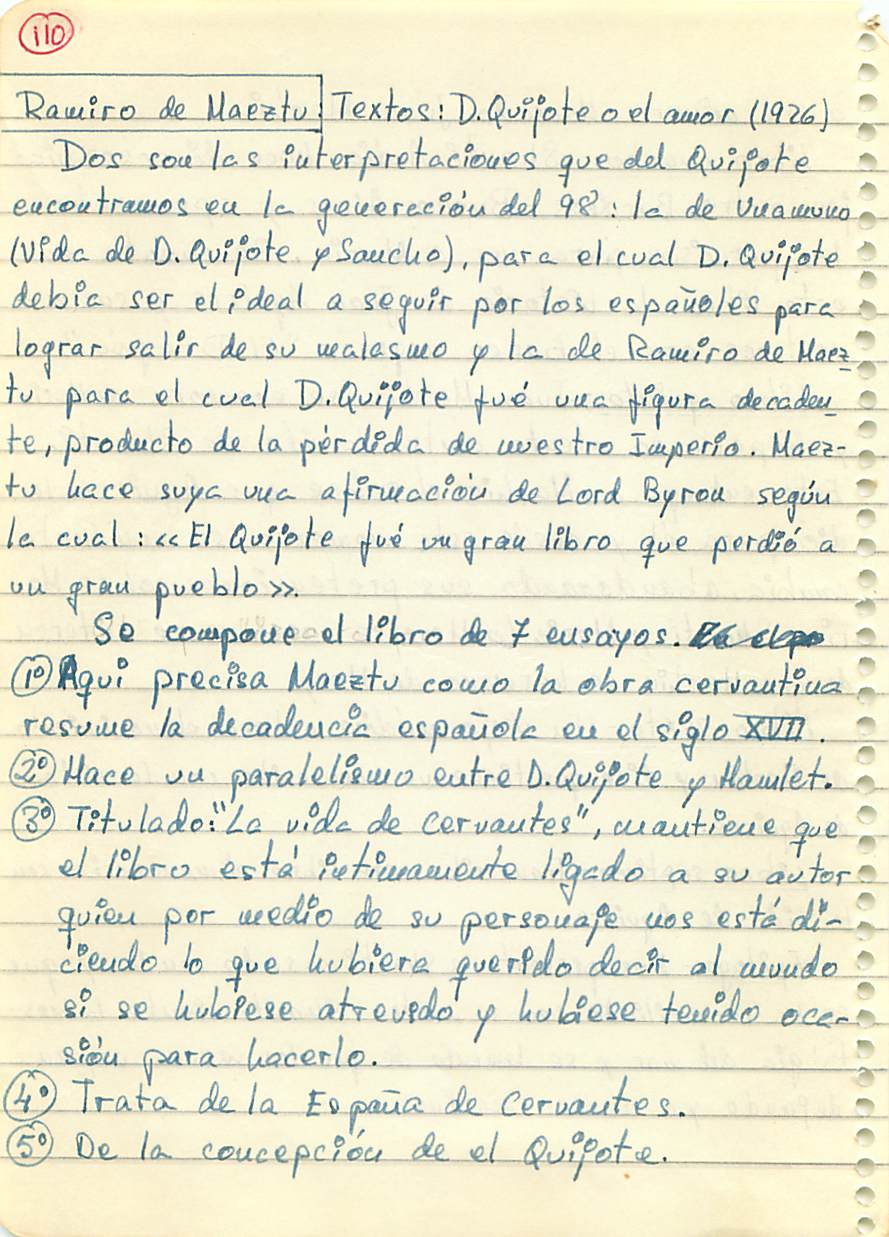 110
Ramiro de Maeztu: Textos: D. Quijote o el amor (1926)
Dos son las interpretaciones que del Quijote
encontramos en la generación del 98: la de Unamuno
(Vida de D. Quijote y Sancho), para el cual D. Quijote
debía ser el ideal a seguir por los españoles para
lograr salir de su malasmo y la de Ramiro de Maez-
tu para el cual D. Quijote fué una figura decaden-
te, producto de la pérdida de nuestro Imperio. Maez-
tu hace suya una afirmación de Lord Byron según
la cual: «El Quijote fué un gran libro que perdió a
un gran pueblo».
Se compone el libro de 7 ensayos.
1º Aqui precisa Maeztu como la obra cervantina
resume la decadencia española en el siglo XVII.
2º Hace un paralelismo entre D. Quijote y Hamlet.
3º Titulado: "La vida de Cervantes", mantiene que
el libro está intimamente ligado a su autor
quien por medio de su personaje nos está di-
ciendo lo que hubiera querido decir al mundo
si se hubiese atrevido y hubiese tenido oca-
sión para hacerlo.
4º Trata de la España de Cervantes.
5º De la concepción de el Quijote.